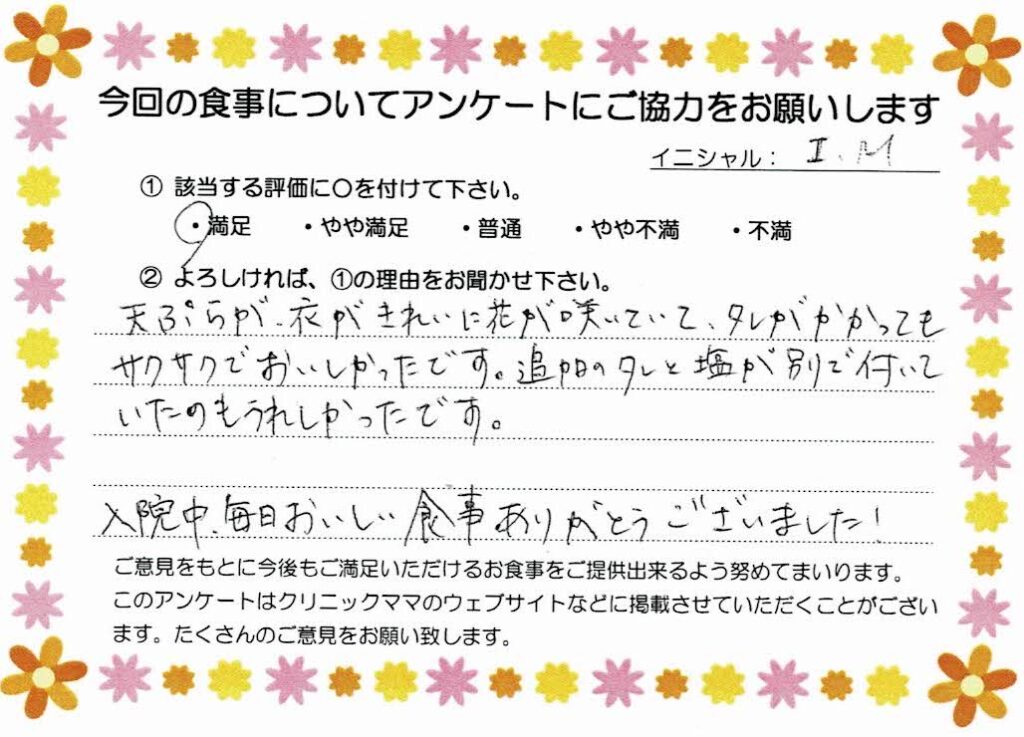 今回の食事についてアンケートにご協力をお願いします
イニシャル： I.M
① 該当する評価に○を付けて下さい。
・満足 ・やや満足 ・普通 ・やや不満 ・不満
② よろしければ、①の理由をお聞かせ下さい。
天ぷらが、衣がきれいに花が咲いていて、タレがかかっても
サクサクでおいしかったです。追加のタレと塩が別で付いて
いたのもうれしかったです。
入院中、毎日おいしい食事ありがとうございました！
ご意見をもとに今後もご満足いただけるお食事をご提供出来るよう努めてまいります。
このアンケートはクリニックママのウェブサイトなどに掲載させていただくことがござい
ます。たくさんのご意見をお願い致します。